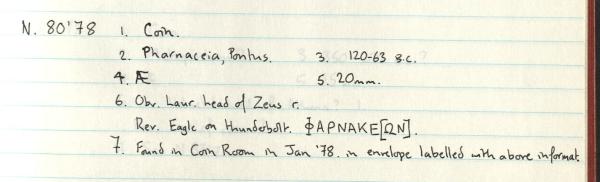 N. 80'78 1. Coin.
2. Pharnaceia, Pontus. 3. 120-63 B.C.
4. Æ 5. 20mm.
6. Obv. Laur. head of Zeus r.
Rev. Eagle on thunderbolt. ΦΑΡΝΑΚΕ[ΩΝ].
7. Found in Coin Room in Jan '78. in envelope labelled with above informat.